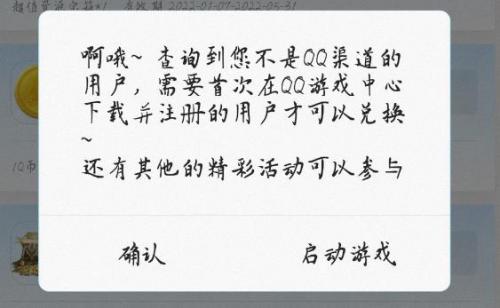 超值豪派宝箱*1 有效期 2022-01-07-2022-03-31
啊哦~ 查询到您不是QQ渠道的
用户，需要首次在QQ游戏中心
下载并注册的用户才可以兑换
~
还有其他的精彩活动可以参与
1Q币
确认 启动游戏